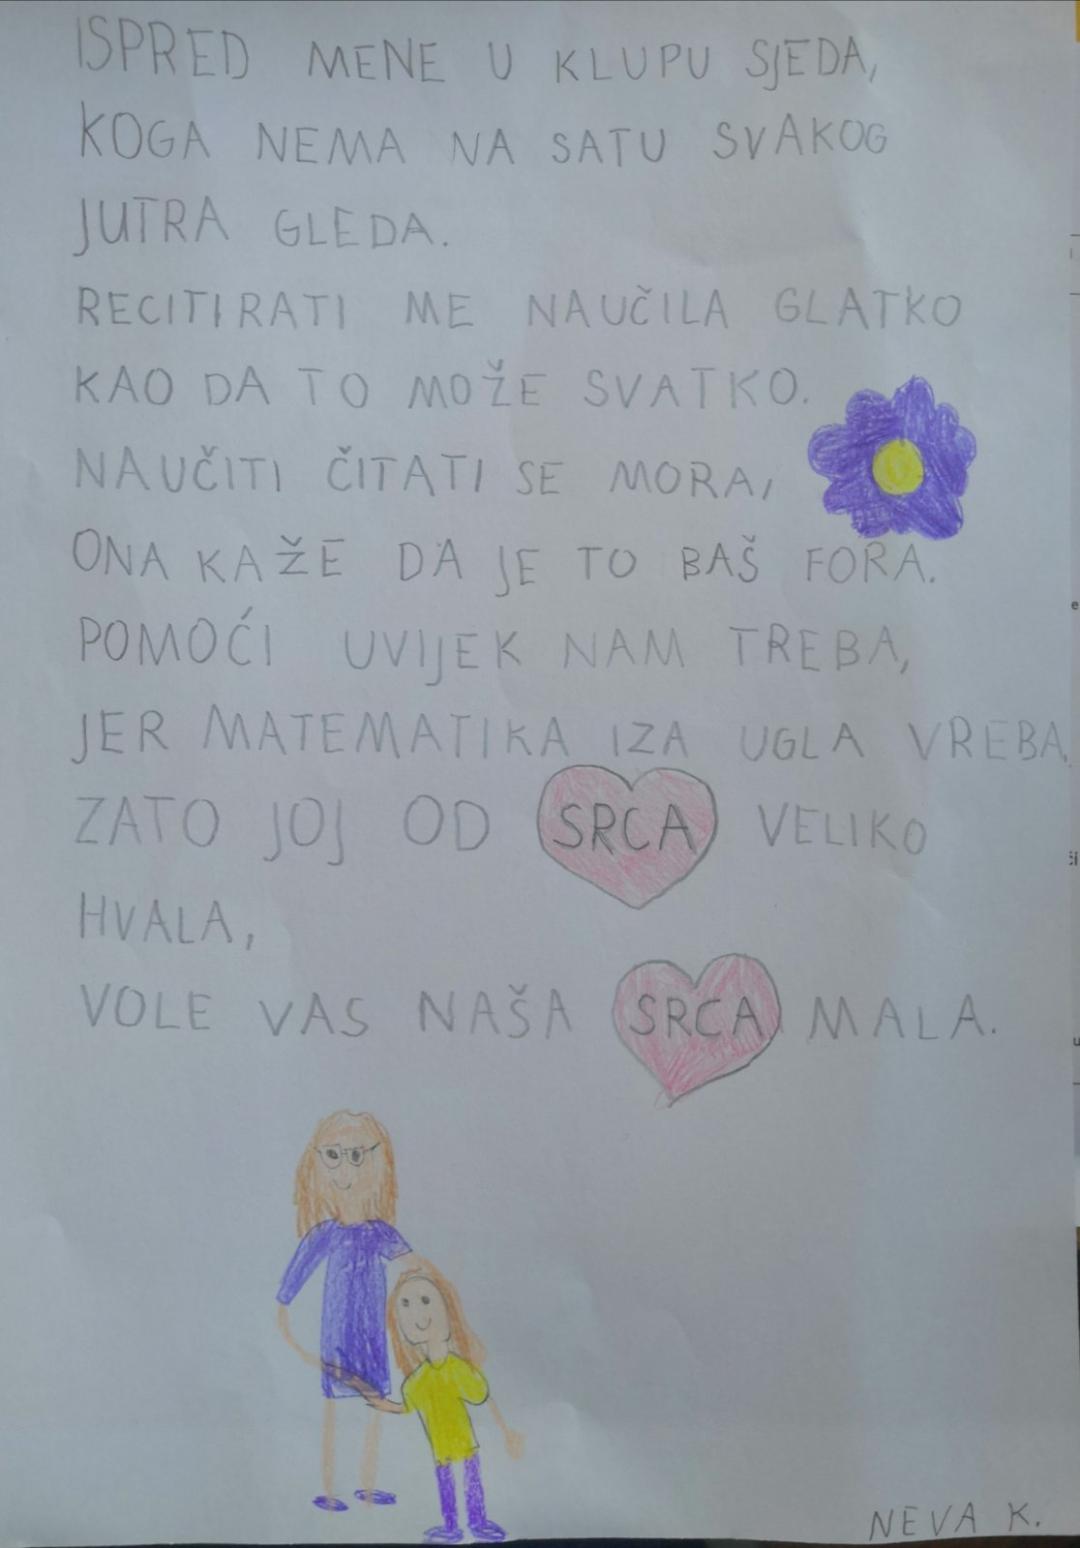 ISPRED MENE U KLUPU SJEDA,
KOGA NEMA NA SATU SVAKOG
JUTRA GLEDA.
RECITIRATI ME NAUČILA GLATKO
KAO DA TO MOŽE SVATKO.
NAUČITI ČITATI SE MORA,
ONA KAŽE DA JE TO BAŠ FORA.
POMOĆI UVIJEK NAM TREBA,
JER MATEMATIKA IZA UGLA VREBA,
ZATO JOJ OD SRCA VELIKO
HVALA,
VOLE VAS NAŠA SRCA MALA.
NEVA K.